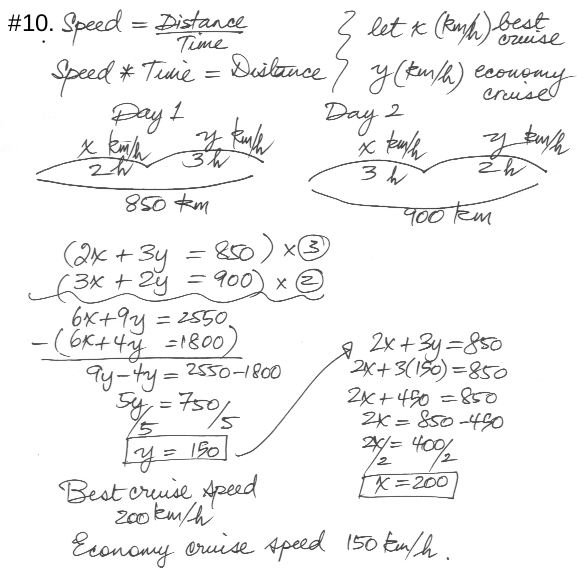 #10. Speed = Distance / Time
Speed * Time = Distance
let x (km/h) best cruise
y (km/h) economy cruise
Day 1
x km/h y km/h
2h 3h
850 km
Day 2
x km/h y km/h
3 h 2h
900 km
(2x + 3y = 850) × ③
(3x + 2y = 900) × ②
6x + 9y = 2550
-(6x + 4y = 1800)
9y - 4y = 2550 - 1800
5y = 750
/5 /5
y = 150
2x + 3y = 850
2x + 3(150) = 850
2x + 450 = 850
2x = 850 - 450
2x/2 = 400/2
x = 200
Best cruise speed
200 km/h
Economy cruise speed 150 km/h.